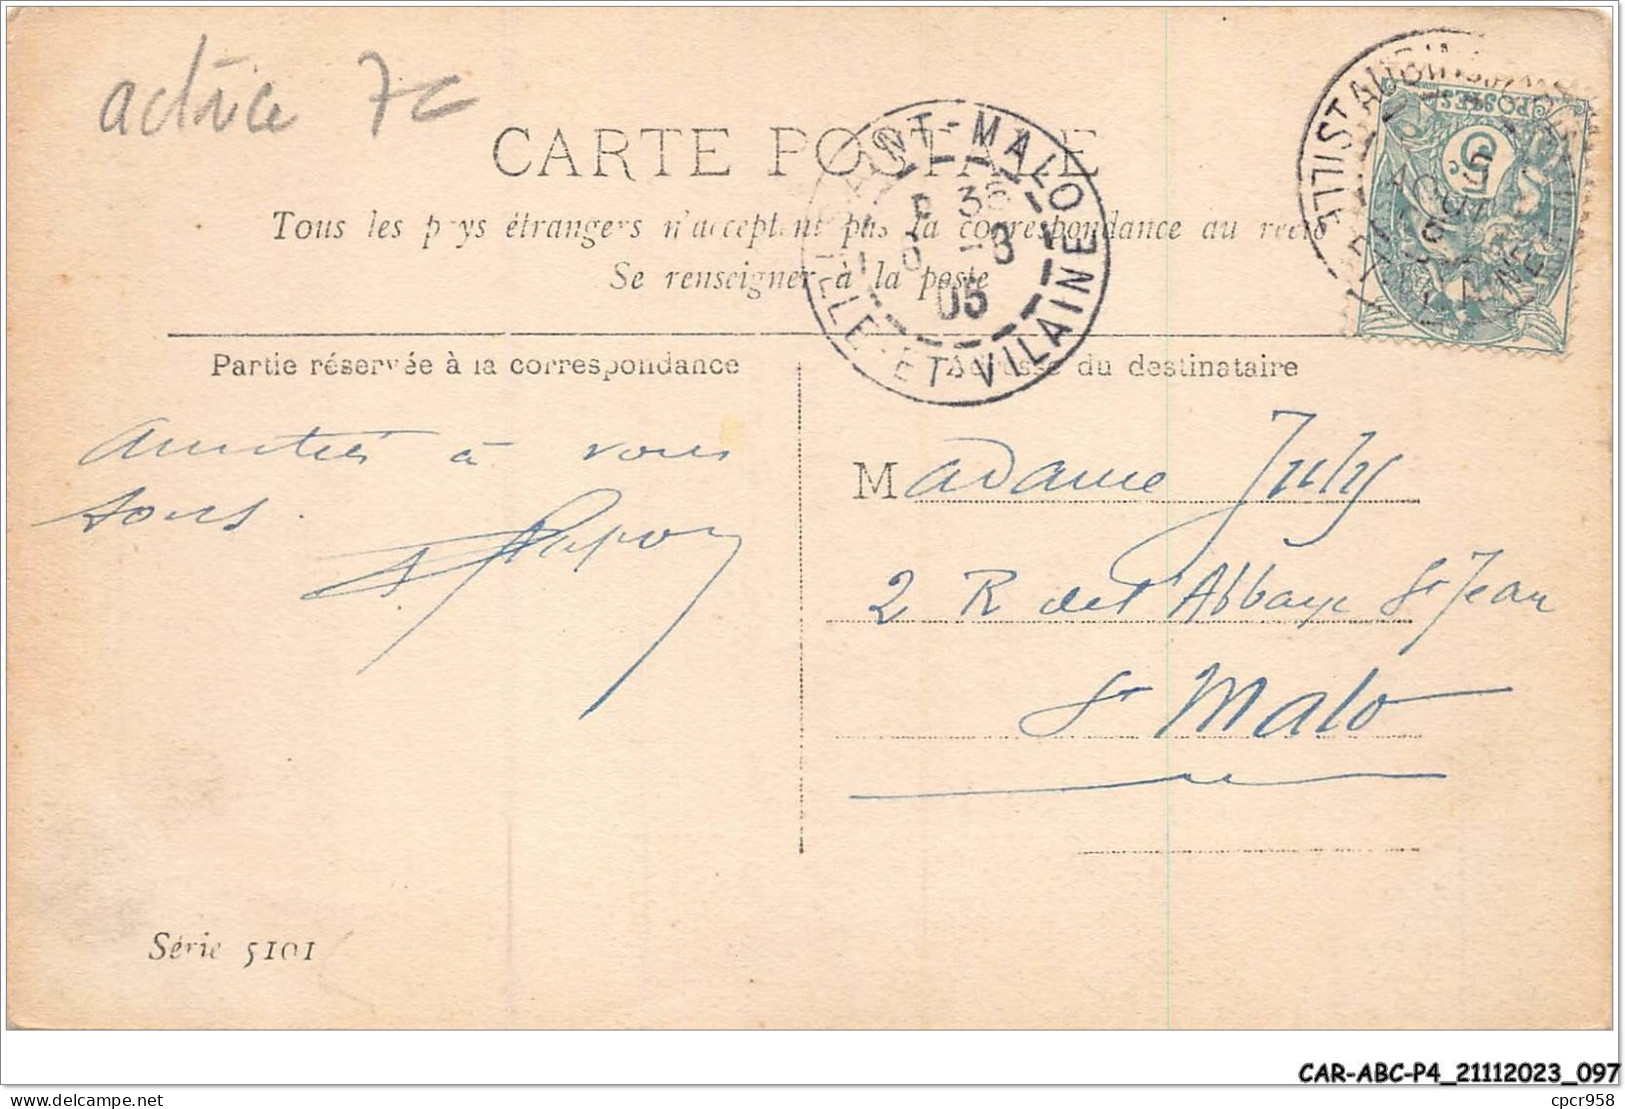 actrice 7c
CARTE POSTALE
Tous les pays étrangers n'acceptent pas la correspondance au recto
Se renseigner à la poste
SAINT-MALO
ILLE-ET-VILAINE
36
05
POSTES
5
Partie réservée à la correspondance
Adresse du destinataire
Amitiés à vous
tous.
Madame July
2 R de l'Abbaye St Jean
St Malo
Série 5101
CAR-ABC-P4_21112023_097
cpcr958